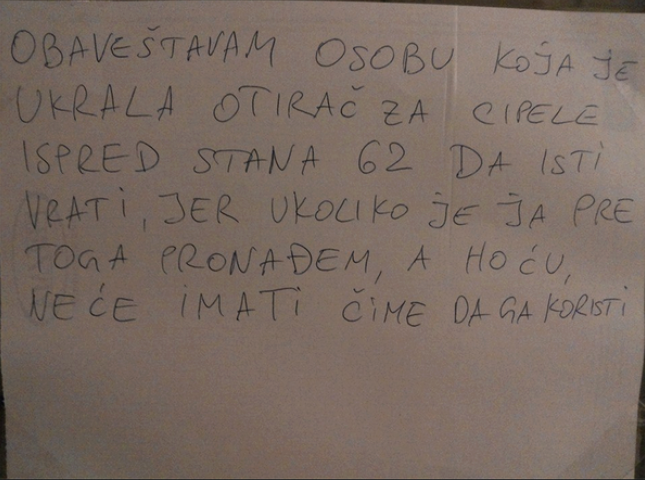 OBAVEŠTAVAM OSOBU KOJA JE
UKRALA OTIRAČ ZA CIPELE
ISPRED STANA 62 DA ISTI
VRATI, JER UKOLIKO JE JA PRE
TOGA PRONAĐEM, A HOĆU,
NEĆE IMATI ČIME DA GA KORISTI